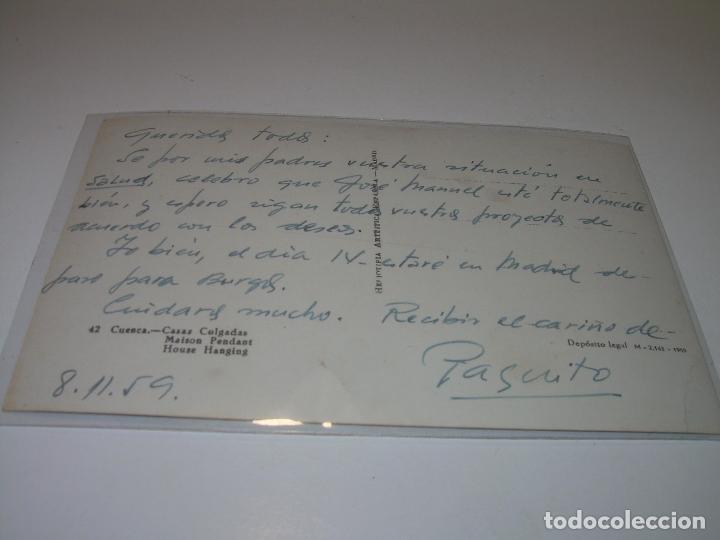 Queridos todos:
Se por mis padres vuestra situación en
salud, celebro que José Manuel esté totalmente
bien, y espero sigan todos vuestros proyectos de
acuerdo con los deseos.
Yo bien, el día 14 estaré en Madrid de
paso para Burgos.
Cuidaros mucho. Recibir el cariño de
Paquito
8.11.59.
42 Cuenca.—Casas Colgadas
Maison Pendant
House Hanging
HELIOTIPIA ARTÍSTICA ESPAÑOLA—MADRID
Depósito legal M - 2.162 -
todocoleccion